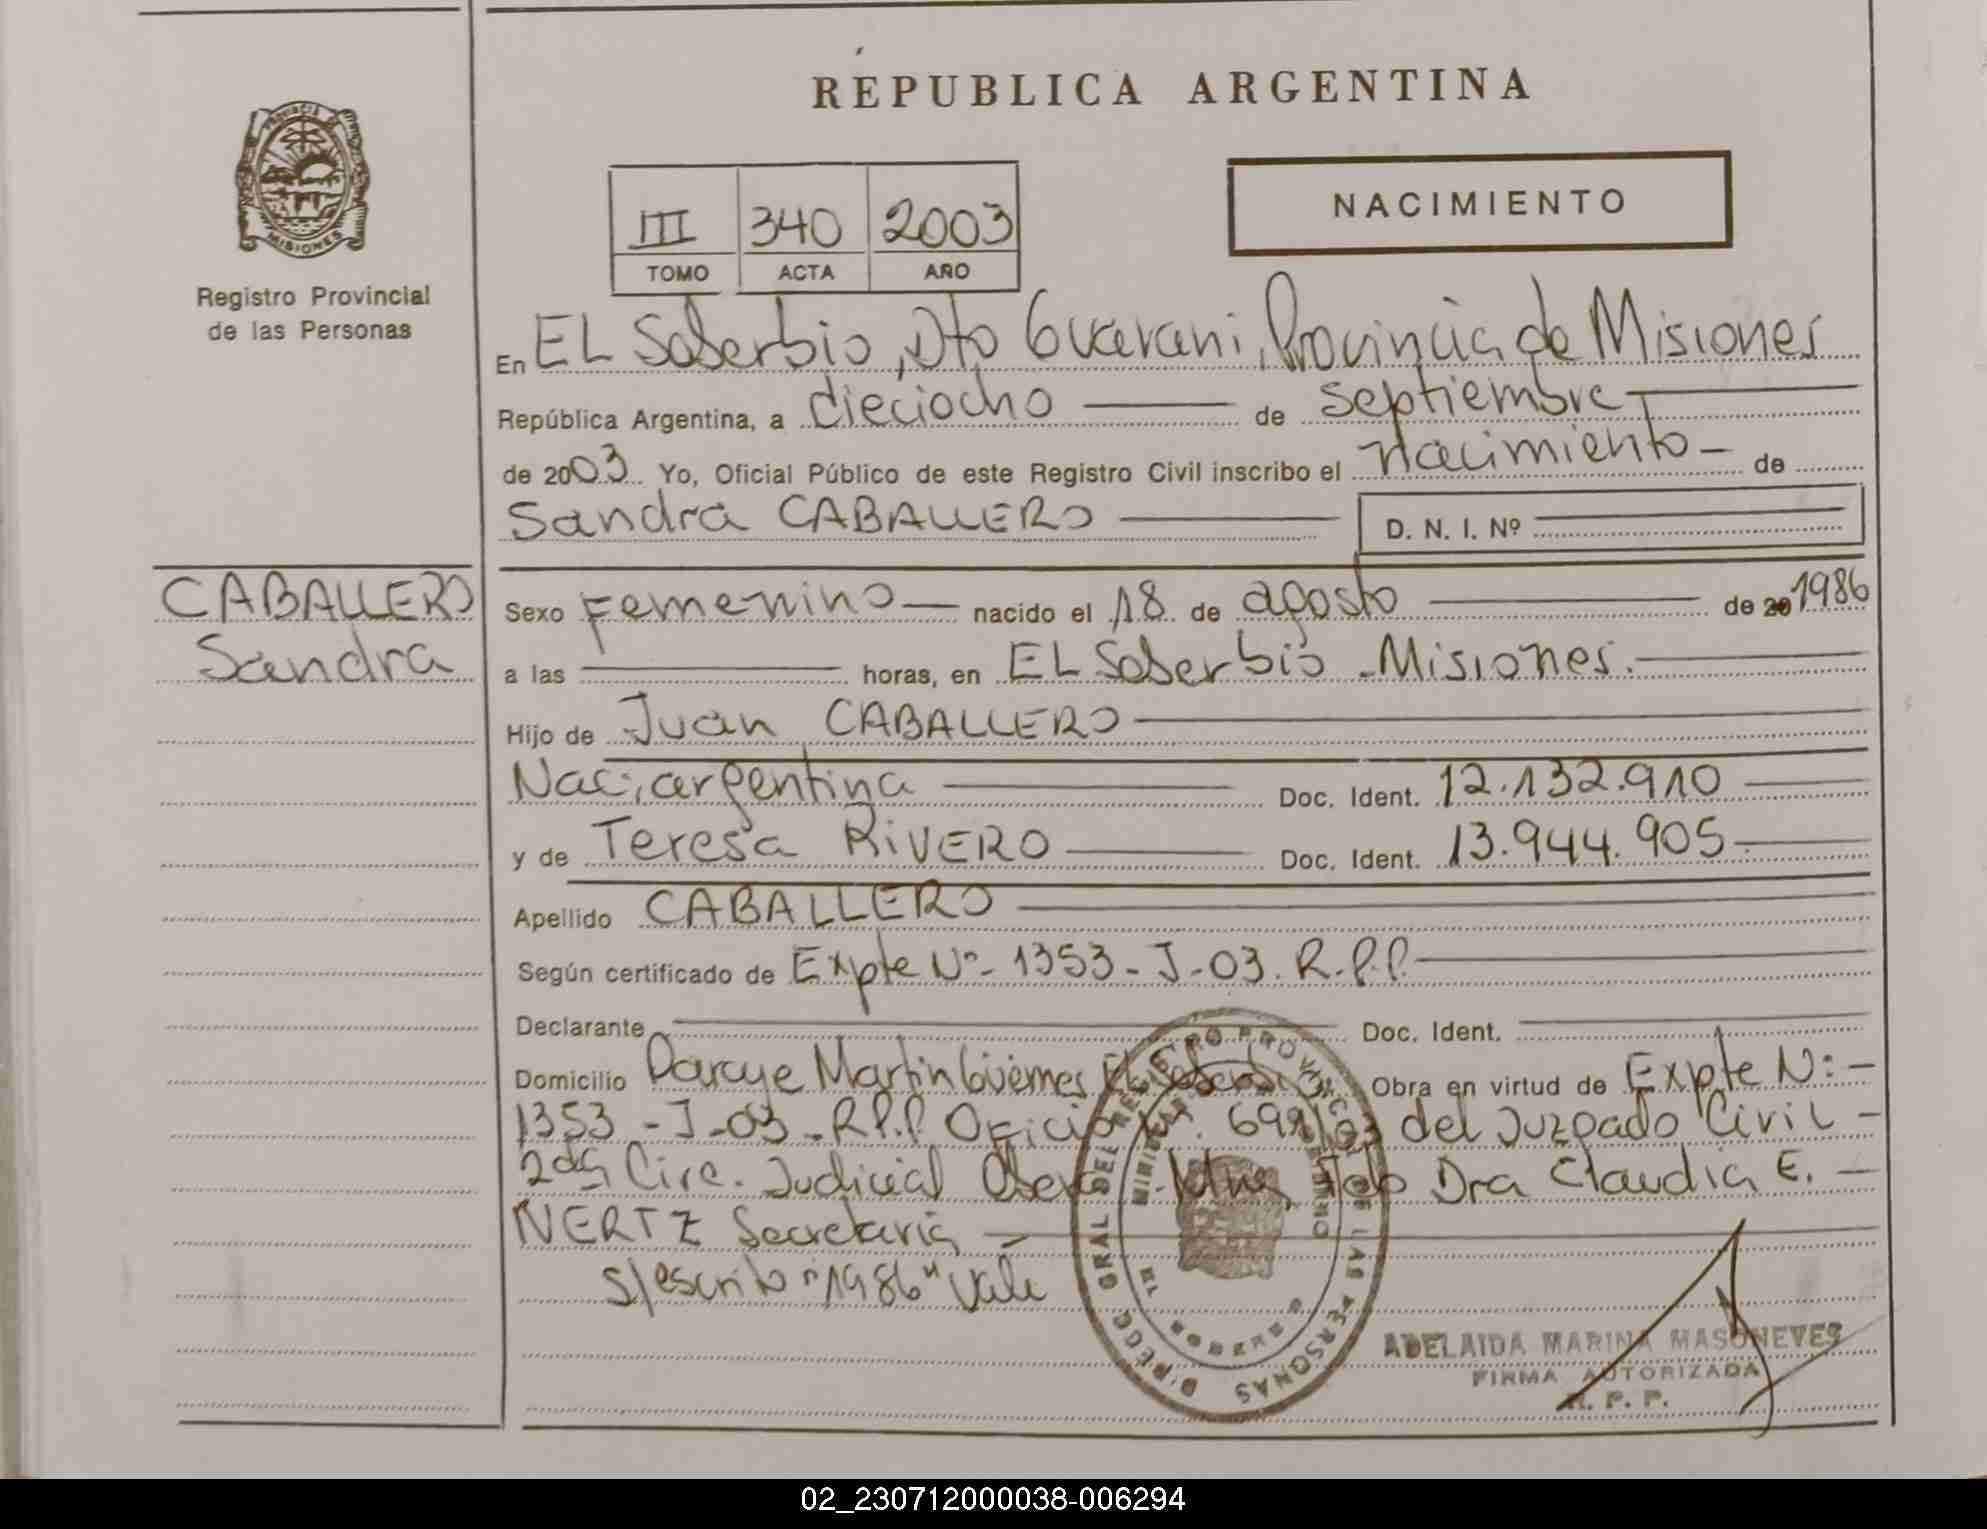 REPUBLICA ARGENTINA
PROVINCIA
MISIONES
Registro Provincial
de las Personas
III 340 2003
TOMO ACTA AÑO
NACIMIENTO
En EL Soberbio, Dto Guarani, Provincia de Misiones
República Argentina, a dieciocho de septiembre
de 2003 Yo, Oficial Público de este Registro Civil inscribo el nacimiento de
Sandra CABALLERO D. N. I. Nº
CABALLERO
Sandra
Sexo Femenino nacido el 18 de agosto de 20 1986
a las horas, en EL Soberbio - Misiones.
Hijo de Juan CABALLERO
Nac: argentina Doc. Ident. 12.132.910
y de Teresa RIVERO Doc. Ident. 13.944.905
Apellido CABALLERO
Según certificado de Expte Nº - 1353 - J - 03. R.P.P.
Declarante Doc. Ident.
Domicilio Paraje Martin Güemes El Soberbio Obra en virtud de Expte N: -
1353 - J - 03 - R.P.P Oficio del Juzgado Civil -
2da Circ. Judicial Obera Fdo Dra Claudia E. -
NERTZ Secretaria -
S/escrito "1986" Vale
DIRECC GRAL DEL REGISTRO PROVINCIAL DE LAS PERSONAS
MINISTERIO DE GOBIERNO
EL SOBERBIO
ADELAIDA MARINA MASONEVES
FIRMA AUTORIZADA
R. P. P.
02_230712000038-006294